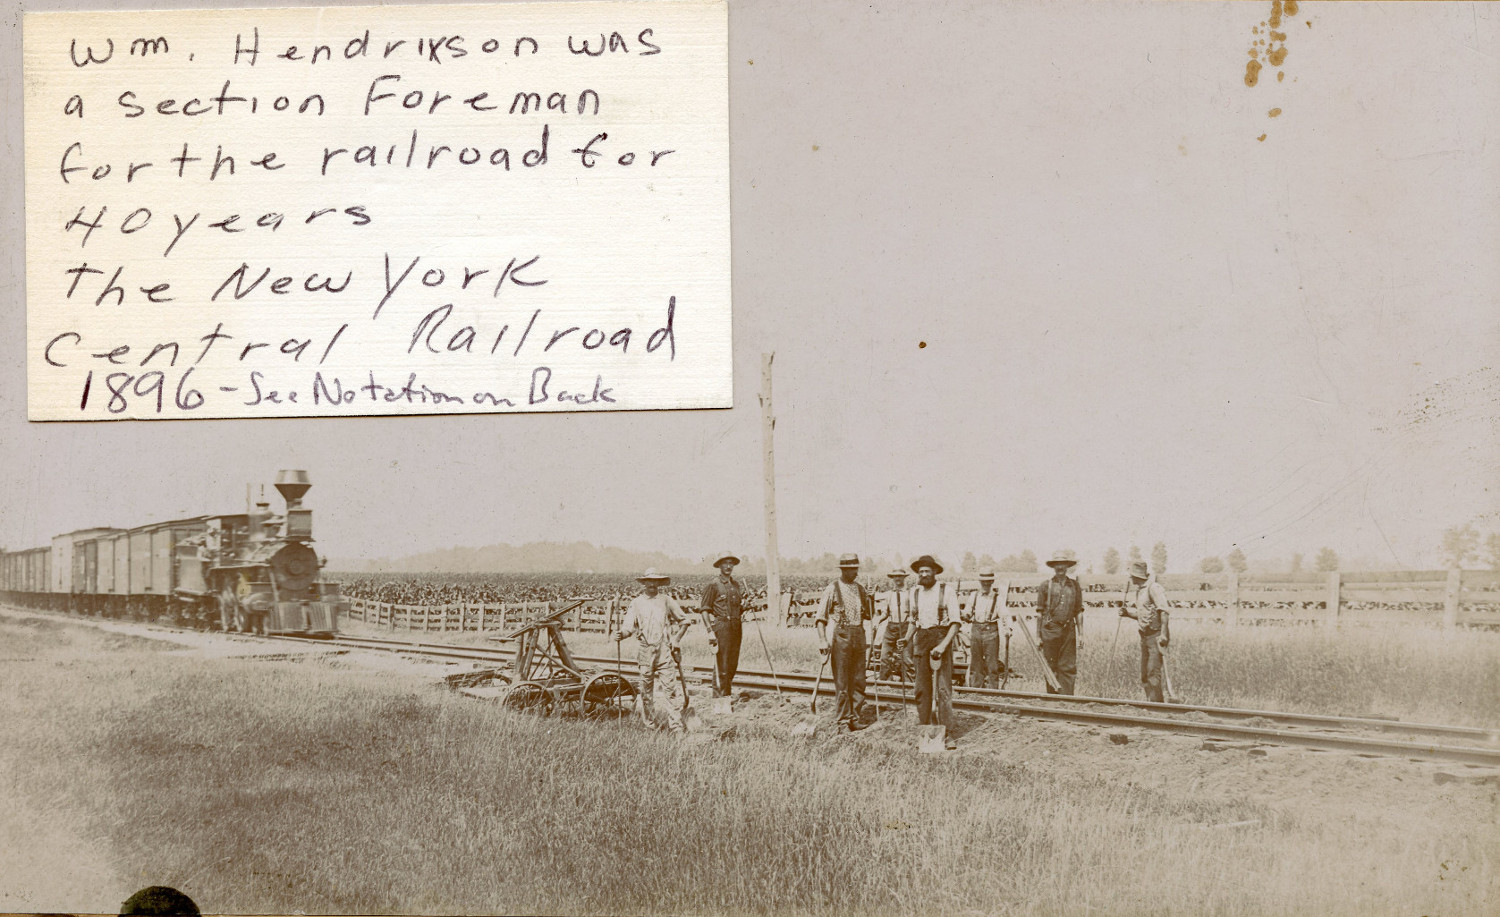 Wm. Hendrikson was
a section Foreman
for the railroad for
40 years
the New York
Central Railroad
1896 - See Notation on Back